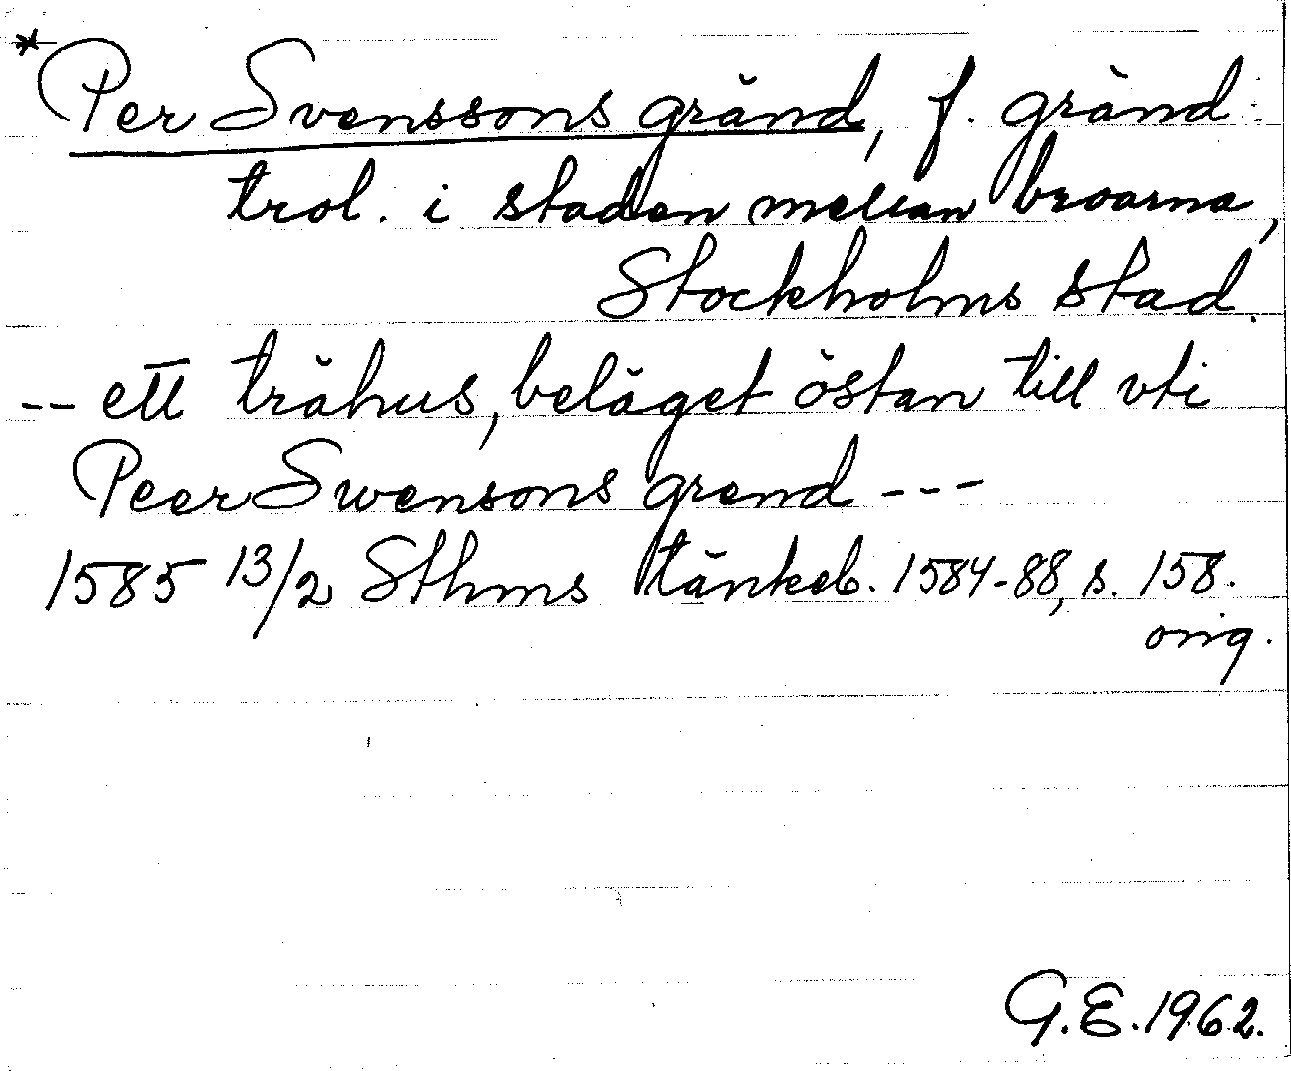 * Per Svenssons gränd, f. gränd
trol. i staden mellan broarna,
Stockholms stad.
-- ett trähus, beläget östan till vti
Peer Swensons grend ---
1585 13/2 Sthms tänkeb. 1584-88, s. 158.
orig.
G.E. 1962.